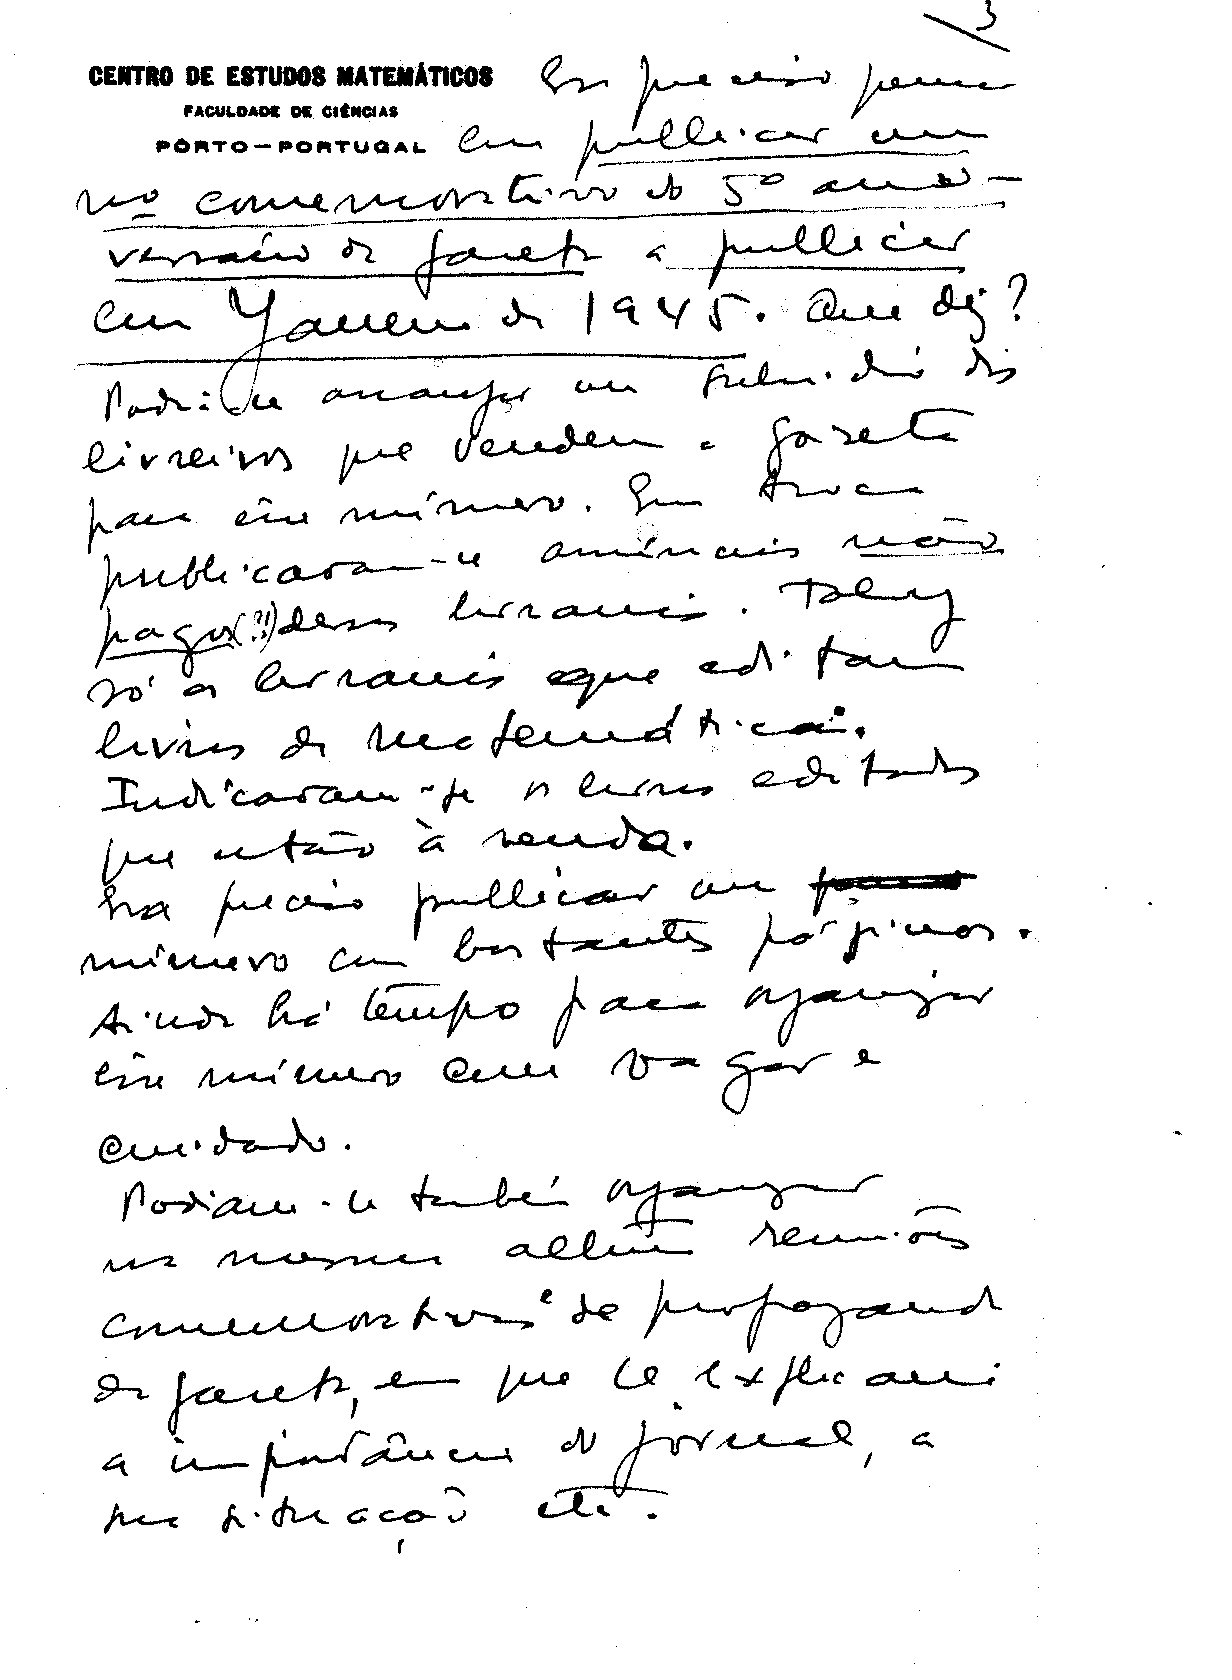 3
CENTRO DE ESTUDOS MATEMÁTICOS
FACULDADE DE CIÊNCIAS
PÔRTO—PORTUGAL
Era preciso pensar
em publicar um
nº comemorativo do 5º ani-
versário da gazeta a publicar
em Janeiro de 1945. Que diz?
Podia-se arranjar um subsídio dos
livreiros que vendem a gazeta
para êsse número. Em troca
publicaram-se anúncios não
pagos(?!) dessas livrarias. Talvez
só as livrarias que editam
livros de matemática.
Indicavam-se os livros editados
que estão à venda.
Era preciso publicar um
número com bastantes páginas.
Ainda há tempo para organizar
êsse número com vagar e
cuidado.
Podiam-se também organizar
na mesma altura reuniões
comemorativas e de propaganda
da gazeta, em que se explicaria
a importância do jornal, a
sua situação etc.